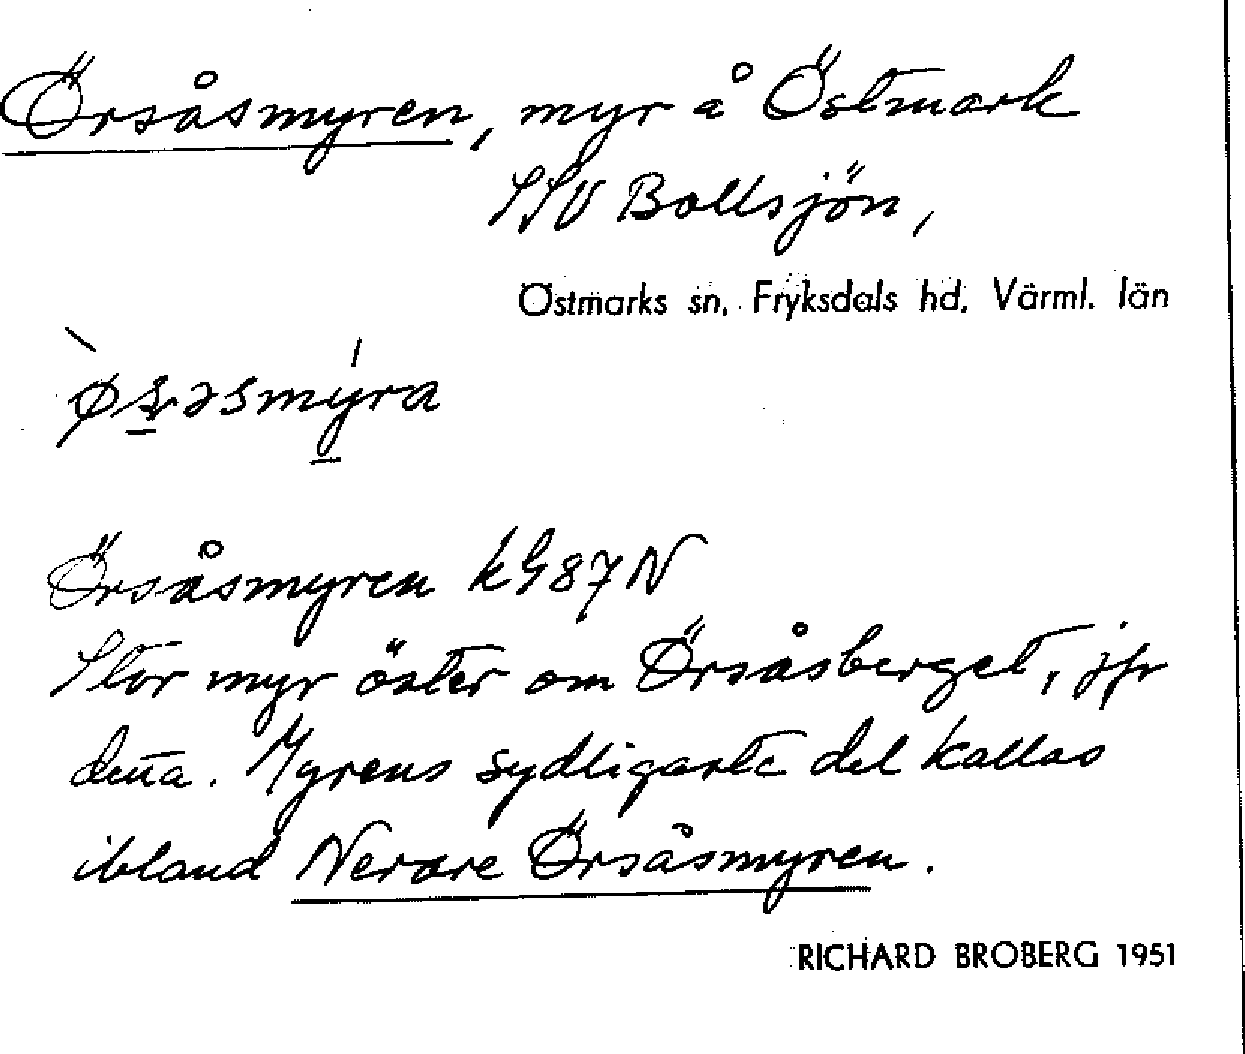 Örsåsmyren, myr å Östmark
SSV Bollsjön,
Östmarks sn. Fryksdals hd. Värml. län
Örsåsmyren kG87N
Stor myr öster om Örsåsberget, jfr
detta. Myrens sydligaste del kallas
ibland Nerare Örsåsmyren.
RICHARD BROBERG 1951